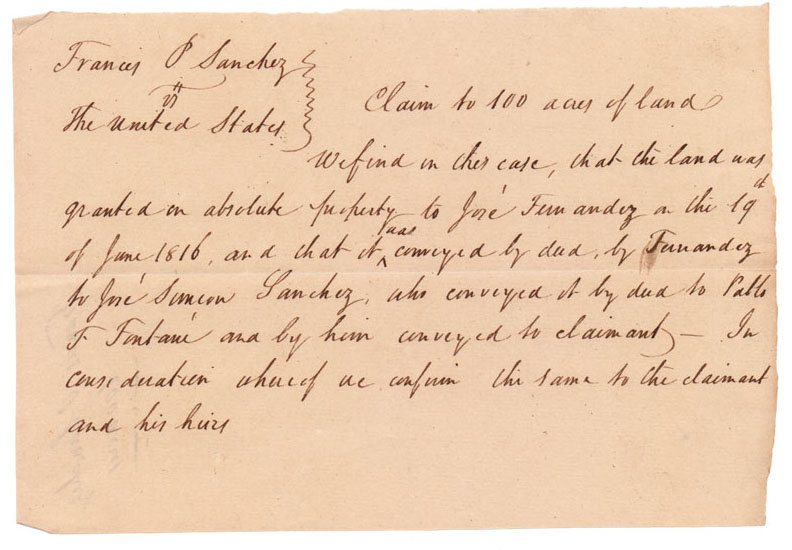 Francis P Sanchez
vs
The United States
Claim to 100 acres of land
We find in this case, that the land was
granted in absolute property to José Fernandez on the 19th
of June 1816, and that it was conveyed by deed, by Fernandez
to José Simeon Sanchez, who conveyed it by deed to Pablo
F Fontané and by him conveyed to claimant — In
consideration whereof we confirm the same to the claimant
and his heirs